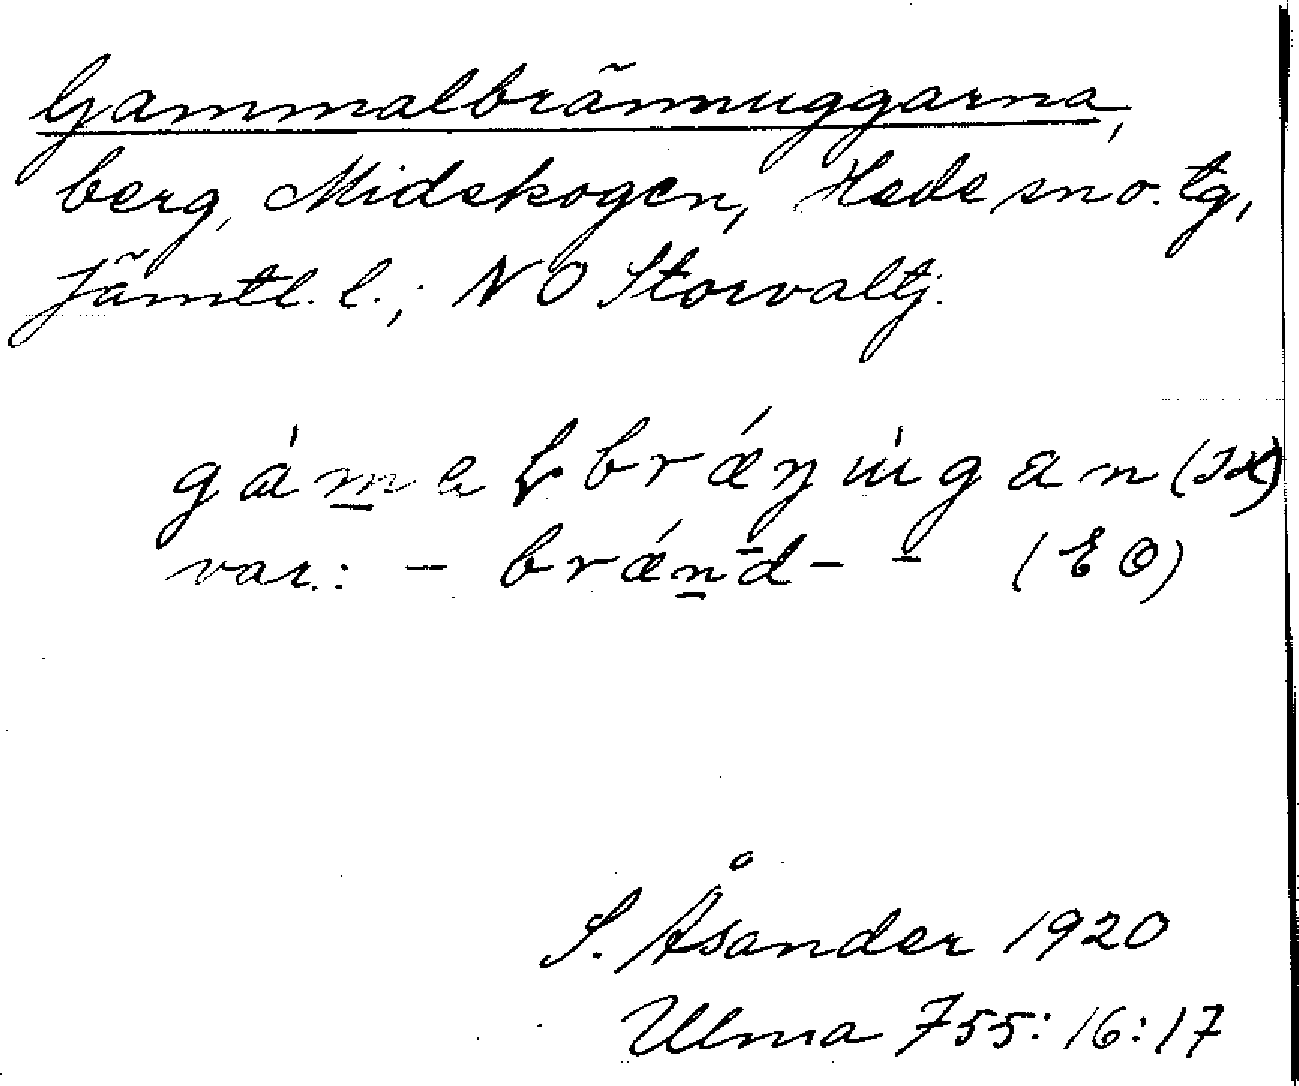 Gammalbrännuggarna,
berg, Midskogen, Hede sn o. tg,
Jämtl. l.; NO Storvaltj.
gámaɫbrǽŋúgan (IX)
var.: - brǽnd- - (EO)
S. Åsander 1920
Ulma 755:16:17